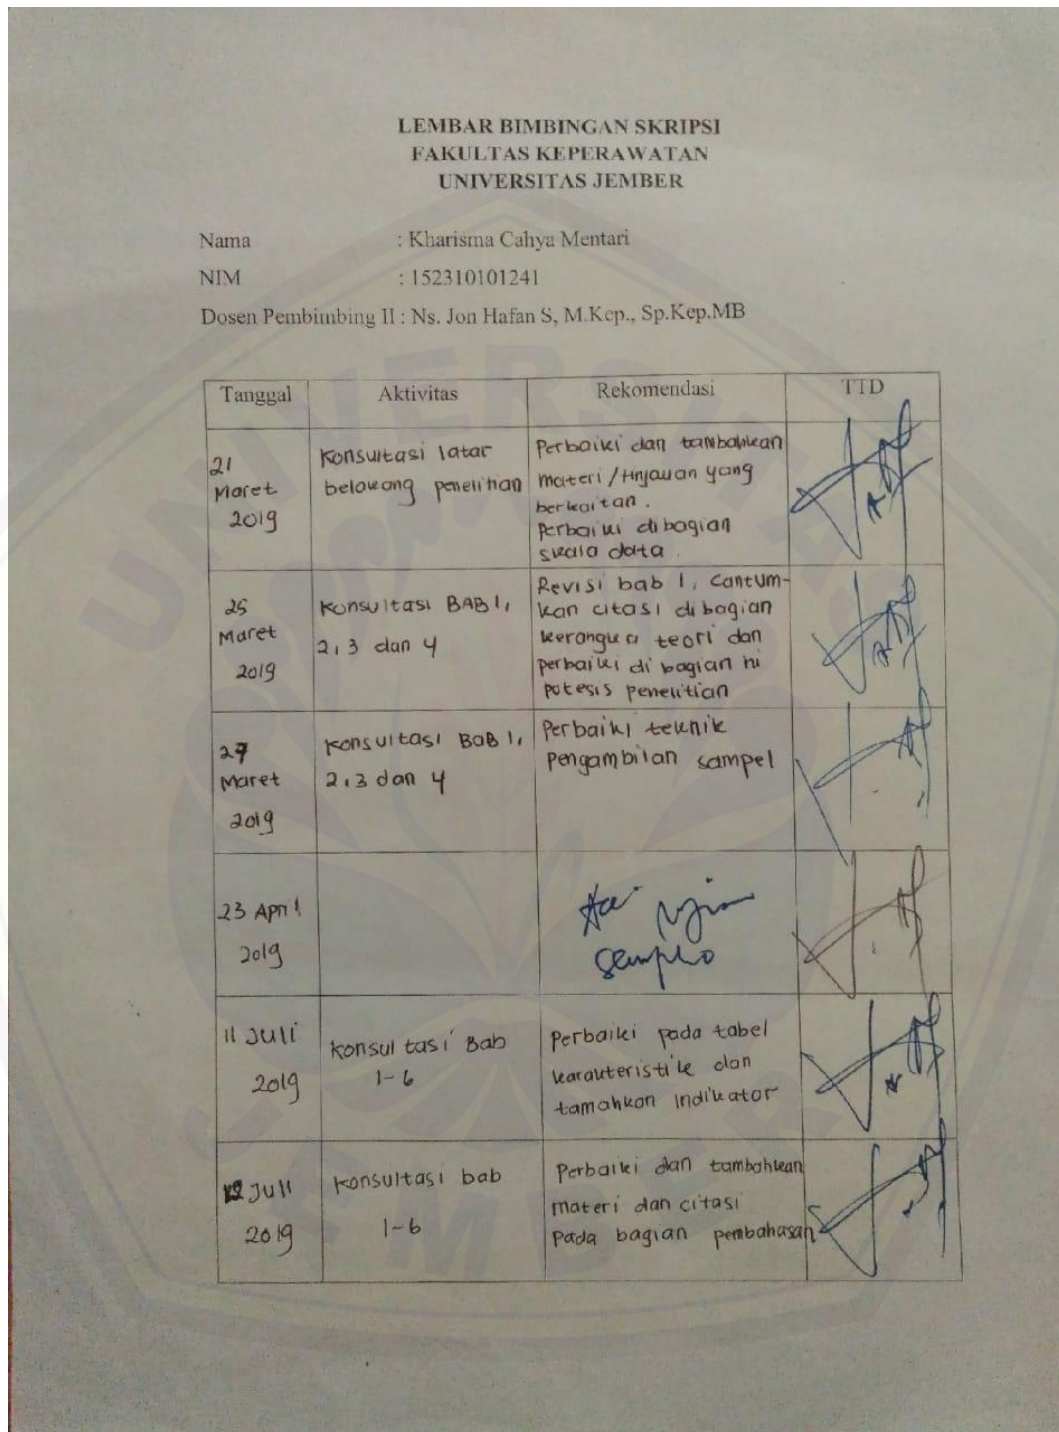 LEMBAR BIMBINGAN SKRIPSI
FAKULTAS KEPERAWATAN
UNIVERSITAS JEMBER
Nama : Kharisma Cahya Mentari
NIM : 152310101241
Dosen Pembimbing II : Ns. Jon Hafan S, M.Kep., Sp.Kep.MB
Tanggal Aktivitas Rekomendasi TTD
21
Maret
2019
Konsultasi latar
belakang penelitian
Perbaiki dan tambahkan
materi/tinjauan yang
berkaitan.
Perbaiki dibagian
skala data.
25
Maret
2019
Konsultasi BAB 1,
2, 3 dan 4
Revisi bab 1, cantum-
kan citasi dibagian
kerangka teori dan
perbaiki di bagian hi
potesis penelitian
27
Maret
2019
Konsultasi BAB 1,
2, 3 dan 4
Perbaiki teknik
pengambilan sampel
23 April
2019
sempro
11 Juli
2019
Konsultasi Bab
1-6
Perbaiki pada tabel
karakteristik dan
tamahkan indikator
12 Juli
2019
Konsultasi bab
1-6
Perbaiki dan tambahkan
materi dan citasi
pada bagian pembahasan
UNIVERSITAS
JEMBER